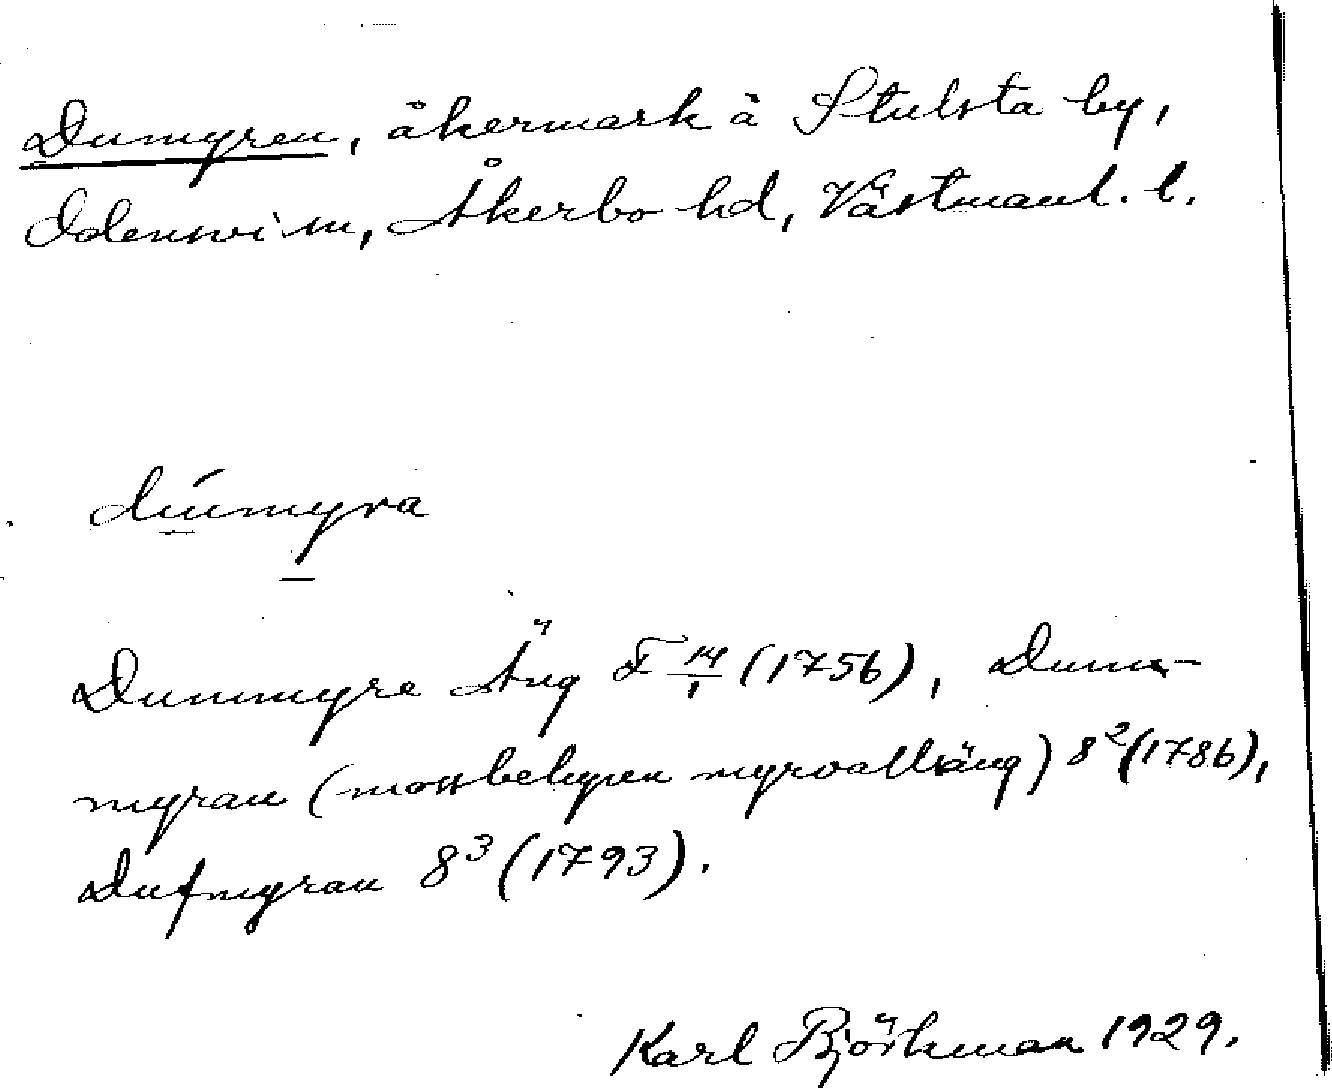 Dumyren, åkermark å Stulsta by,
Odensvi sn, Åkerbo hd, Västmanl. l.
dúmyra
Dummyre Äng F 14/1 (1756), Dum-
myran (mossbelupen myrvallsäng) 8² (1786),
Dufmyran 8³ (1793).
Karl Björkman 1929.